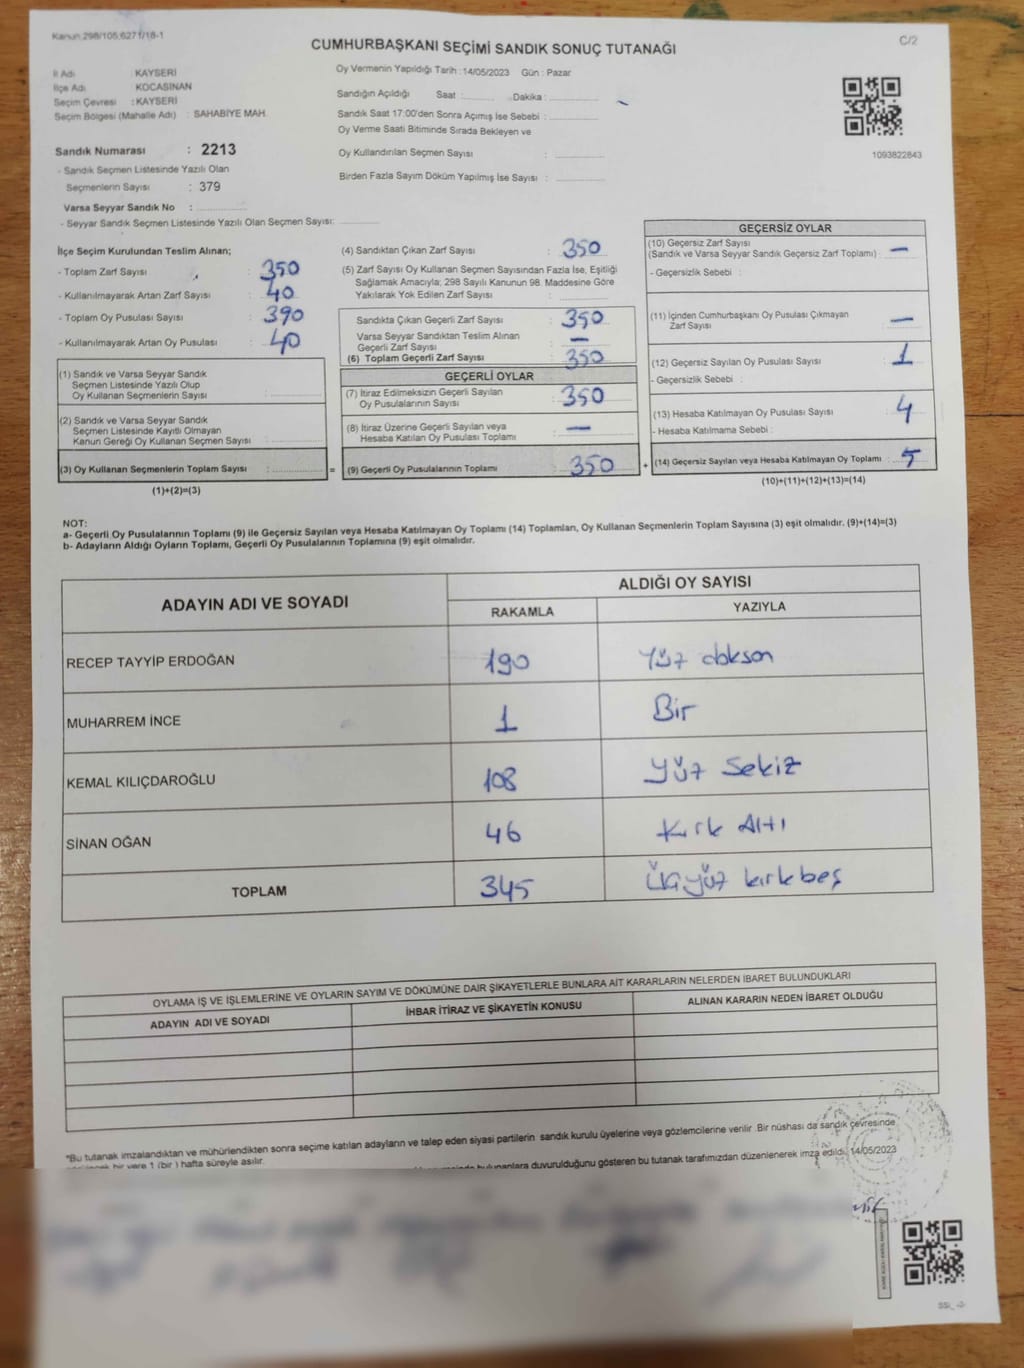 Kanun:298/105,6271/18-1
C/2
CUMHURBAŞKANI SEÇİMİ SANDIK SONUÇ TUTANAĞI
İl Adı : KAYSERİ
İlçe Adı : KOCASİNAN
Seçim Çevresi : KAYSERİ
Seçim Bölgesi (Mahalle Adı) : SAHABİYE MAH.
Sandık Numarası : 2213
- Sandık Seçmen Listesinde Yazılı Olan
Seçmenlerin Sayısı : 379
Varsa Seyyar Sandık No :
- Seyyar Sandık Seçmen Listesinde Yazılı Olan Seçmen Sayısı:
Oy Vermenin Yapıldığı Tarih :14/05/2023 Gün : Pazar
Sandığın Açıldığı Saat : Dakika :
Sandık Saat 17:00'den Sonra Açımış İse Sebebi :
Oy Verme Saati Bitiminde Sırada Bekleyen ve
Oy Kullandırılan Seçmen Sayısı :
Birden Fazla Sayım Döküm Yapılmış İse Sayısı :
1093822843
İlçe Seçim Kurulundan Teslim Alınan;
- Toplam Zarf Sayısı : 350
- Kullanılmayarak Artan Zarf Sayısı : 40
- Toplam Oy Pusulası Sayısı : 390
- Kullanılmayarak Artan Oy Pusulası : 40
(1) Sandık ve Varsa Seyyar Sandık
Seçmen Listesinde Yazılı Olup
Oy Kullanan Seçmenlerin Sayısı :
(2) Sandık ve Varsa Seyyar Sandık
Seçmen Listesinde Kayıtlı Olmayan
Kanun Gereği Oy Kullanan Seçmen Sayısı :
(3) Oy Kullanan Seçmenlerin Toplam Sayısı : =
(1)+(2)=(3)
(4) Sandıktan Çıkan Zarf Sayısı : 350
(5) Zarf Sayısı Oy Kullanan Seçmen Sayısından Fazla İse, Eşitliği
Sağlamak Amacıyla; 298 Sayılı Kanunun 98. Maddesine Göre
Yakılarak Yok Edilen Zarf Sayısı :
Sandıkta Çıkan Geçerli Zarf Sayısı : 350
Varsa Seyyar Sandıktan Teslim Alınan
Geçerli Zarf Sayısı : —
(6) Toplam Geçerli Zarf Sayısı : 350
GEÇERLİ OYLAR
(7) İtiraz Edilmeksizin Geçerli Sayılan
Oy Pusulalarının Sayısı : 350
(8) İtiraz Üzerine Geçerli Sayılan veya
Hesaba Katılan Oy Pusulası Toplamı : —
(9) Geçerli Oy Pusulalarının Toplamı 350 +
GEÇERSİZ OYLAR
(10) Geçersiz Zarf Sayısı
(Sandık ve Varsa Seyyar Sandık Geçersiz Zarf Toplamı) : —
- Geçersizlik Sebebi :
(11) İçinden Cumhurbaşkanı Oy Pusulası Çıkmayan
Zarf Sayısı : —
(12) Geçersiz Sayılan Oy Pusulası Sayısı : 1
- Geçersizlik Sebebi :
(13) Hesaba Katılmayan Oy Pusulası Sayısı : 4
- Hesaba Katılmama Sebebi :
(14) Geçersiz Sayılan veya Hesaba Katılmayan Oy Toplamı : 5
(10)+(11)+(12)+(13)=(14)
NOT:
a- Geçerli Oy Pusulalarının Toplamı (9) ile Geçersiz Sayılan veya Hesaba Katılmayan Oy Toplamı (14) Toplamları, Oy Kullanan Seçmenlerin Toplam Sayısına (3) eşit olmalıdır. (9)+(14)=(3)
b- Adayların Aldığı Oyların Toplamı, Geçerli Oy Pusulalarının Toplamına (9) eşit olmalıdır.
ADAYIN ADI VE SOYADI
ALDIĞI OY SAYISI
RAKAMLA YAZIYLA
RECEP TAYYİP ERDOĞAN 190 Yüz doksan
MUHARREM İNCE 1 Bir
KEMAL KILIÇDAROĞLU 108 Yüz Sekiz
SİNAN OĞAN 46 Kırk Altı
TOPLAM 345 Üçyüz kırkbeş
OYLAMA İŞ VE İŞLEMLERİNE VE OYLARIN SAYIM VE DÖKÜMÜNE DAİR ŞİKAYETLERLE BUNLARA AİT KARARLARIN NELERDEN İBARET BULUNDUKLARI
ADAYIN ADI VE SOYADI İHBAR İTİRAZ VE ŞİKAYETİN KONUSU ALINAN KARARIN NEDEN İBARET OLDUĞU
*Bu tutanak imzalandıktan ve mühürlendikten sonra seçime katılan adayların ve talep eden siyasi partilerin sandık kurulu üyelerine veya gözlemcilerine verilir. Bir nüshası da sandık çevresinde
bir yere 1 (bir) hafta süreyle asılır.
bulunanlara duyurulduğunu gösteren bu tutanak tarafımızdan düzenlenerek imza edildi. 14/05/2023